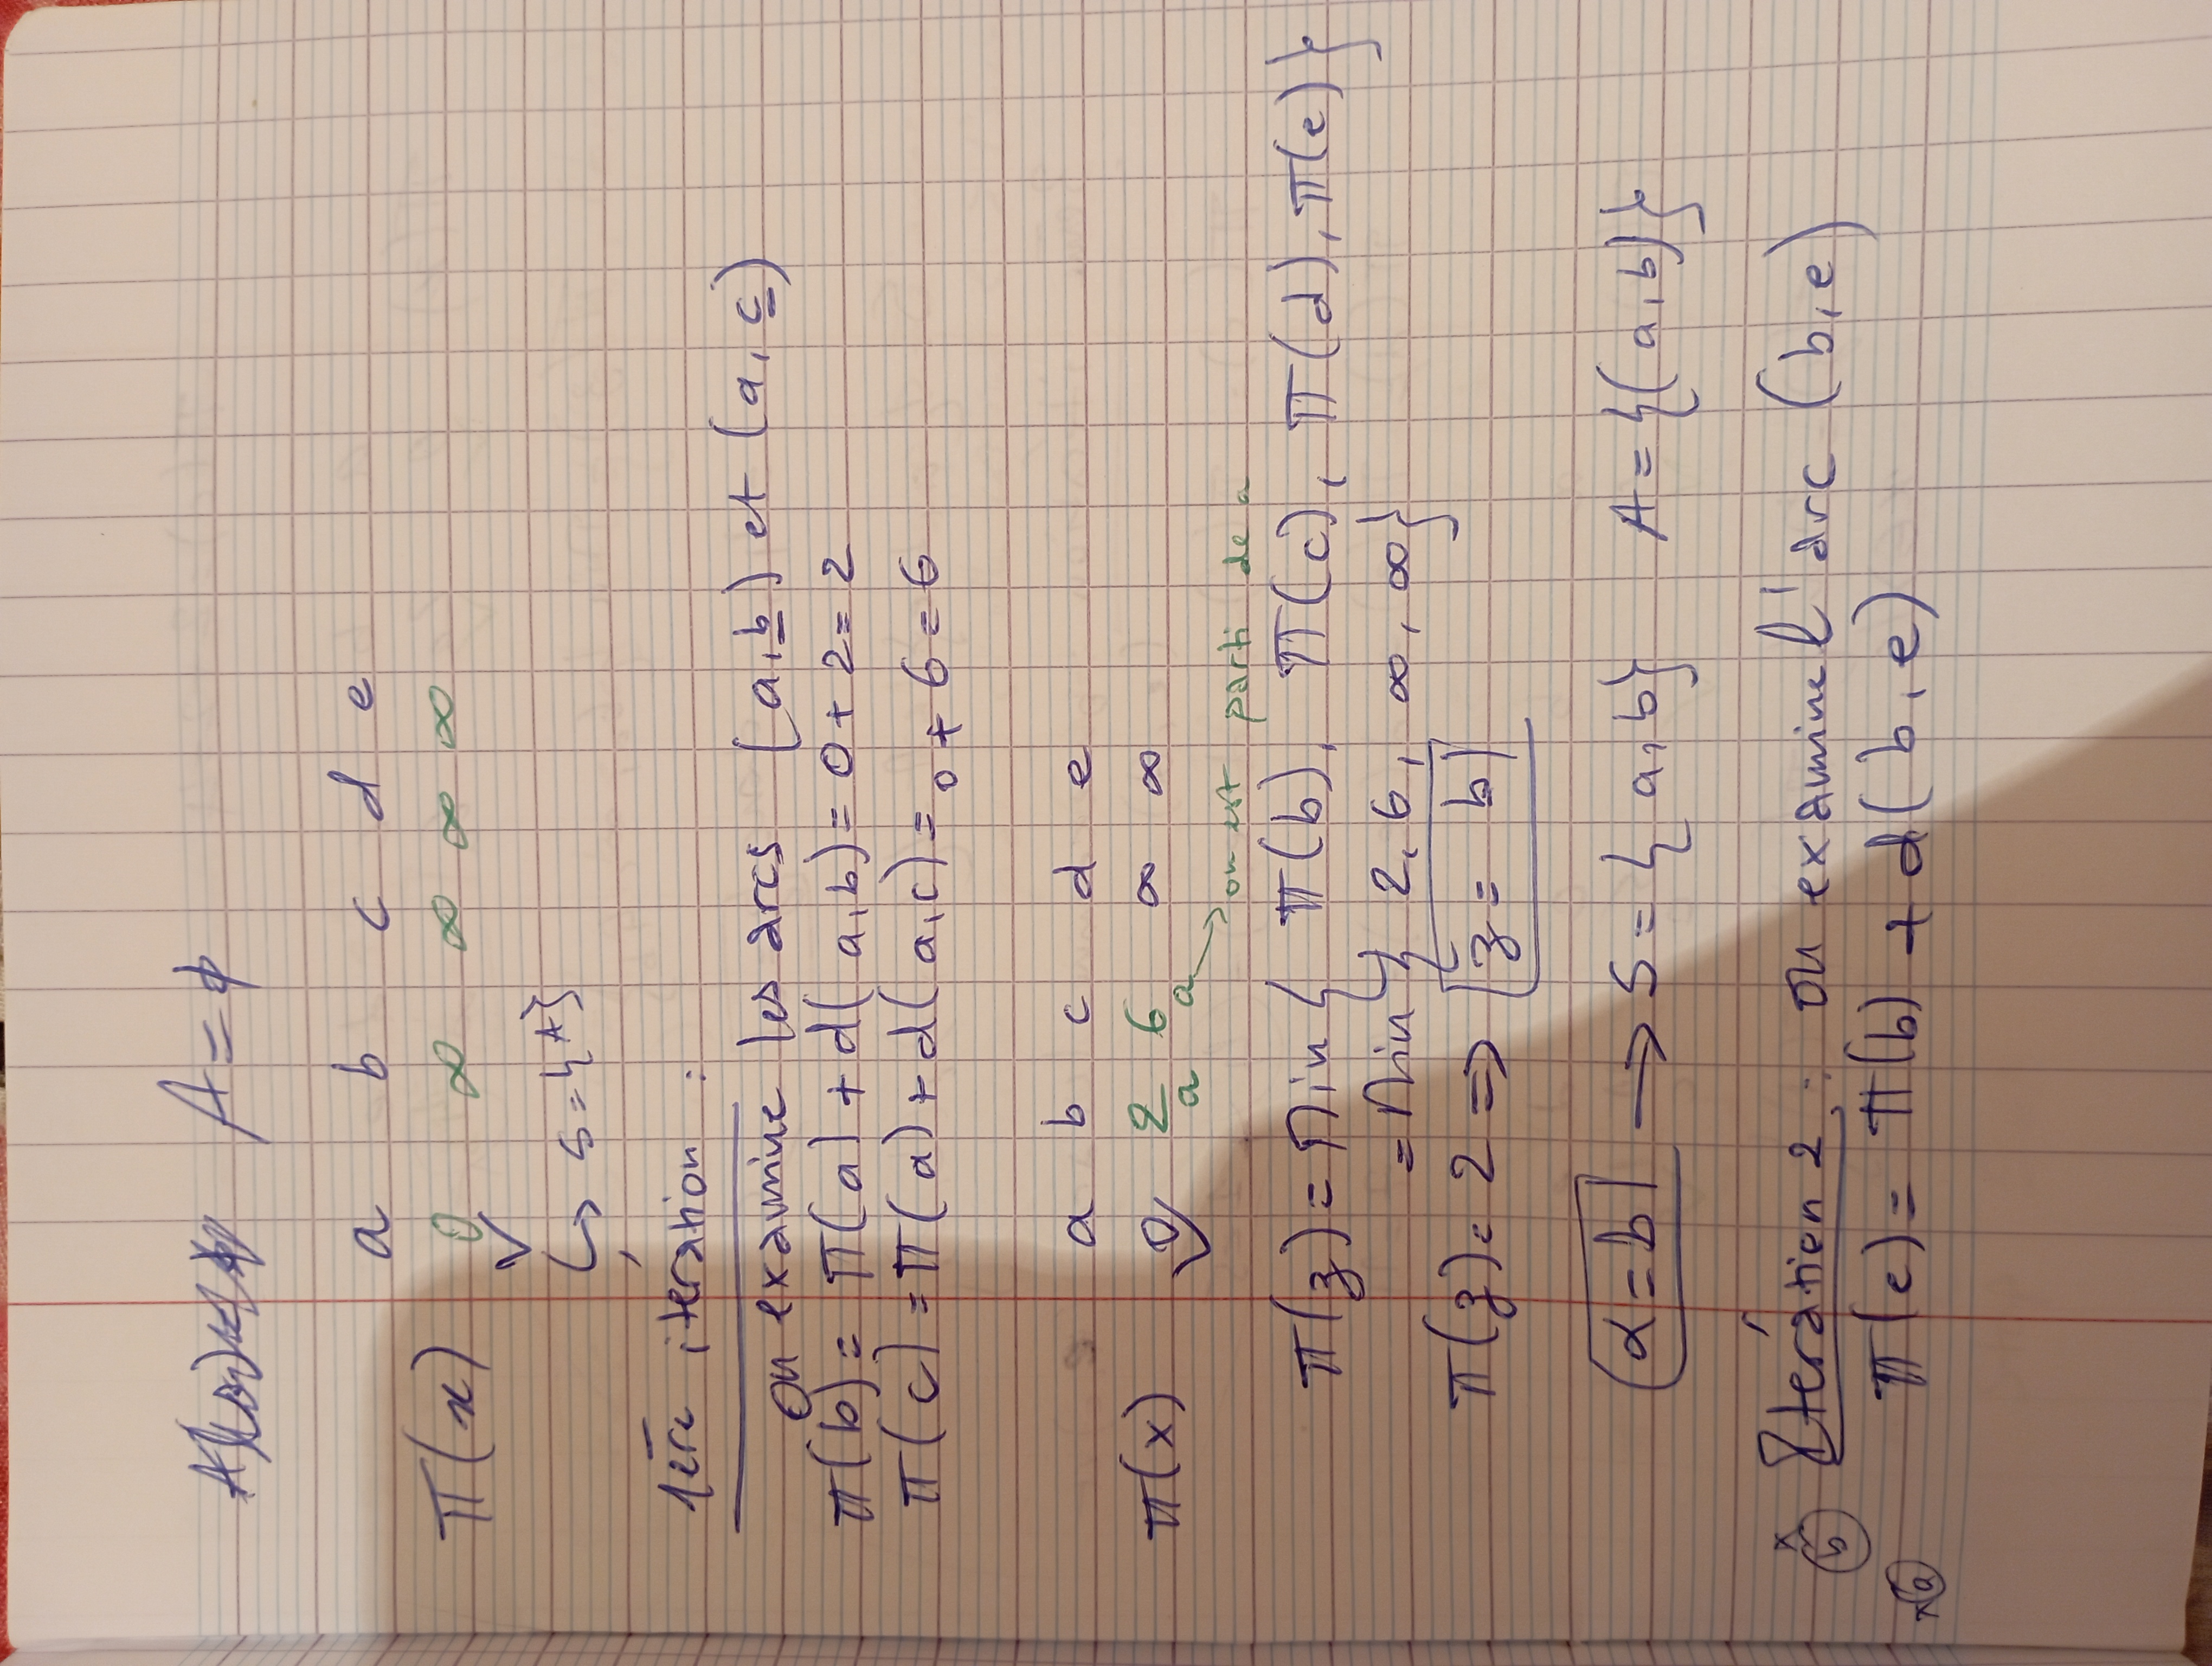 A = ϕ
a b c d e
π(x) 0 ∞ ∞ ∞ ∞
↳ S = {A}
1ère itération :
on examine les arcs (a,b) et (a,c)
π(b) = π(a) + d(a,b) = 0 + 2 = 2
π(c) = π(a) + d(a,c) = 0 + 6 = 6
a b c d e
π(x) 0 2 6 ∞ ∞
a a → on est parti de a
π(z) = Min { π(b), π(c), π(d), π(e) }
= Min { 2, 6, ∞, ∞ }
π(z) = 2 => z = b
α = b → S = { a, b } A = {(a,b)}
Itération 2 : on examine l'arc (b,e)
π(e) = π(b) + d(b,e)
x b
x a